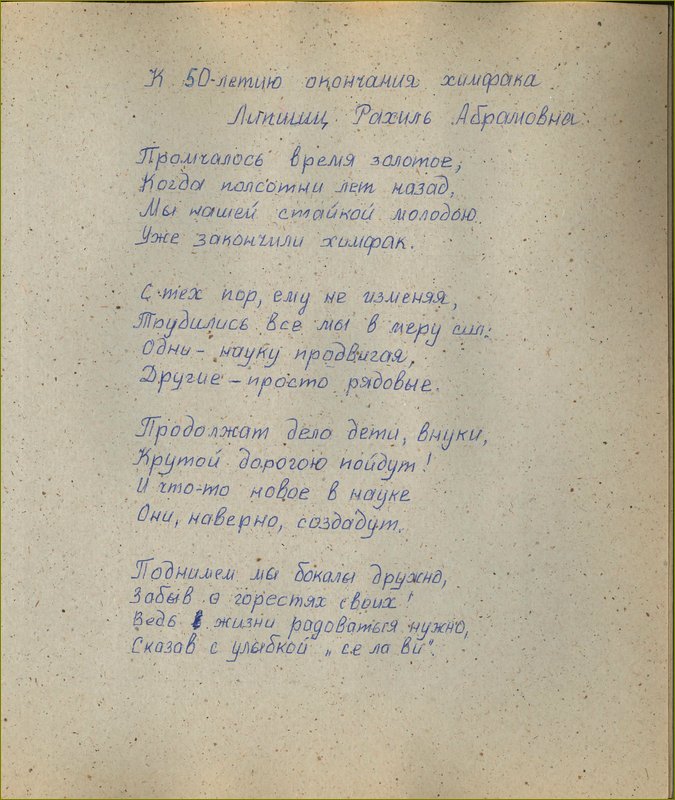 К 50-летию окончания химфака
Липшиц Рахиль Абрамовна
Промчалось время золотое,
Когда полсотни лет назад,
Мы нашей стайкой молодою
Уже закончили химфак.
С тех пор, ему не изменяя,
Трудились все мы в меру сил:
Одни – науку продвигая,
Другие – просто рядовые.
Продолжат дело дети, внуки,
Крутой дорогою пойдут!
И что-то новое в науке
Они, наверно, создадут.
Поднимем мы бокалы дружно,
Забыв о горестях своих!
Ведь в жизни радоваться нужно,
Сказав с улыбкой „се ла ви".